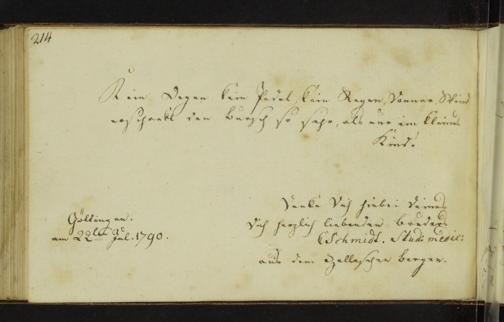 214
Kein Degen kein Pedel, kein Regen, Donner, Wind
erschreckt den Bursch so sehr, als nur ein kleines
Kind.
Denke Dich hiebei Deines
Dich herzlich liebenden Bruders
CSchmidt. Stud: medic:
aus dem Zellischen
Göttingen.
am 22 Jul. 1790.